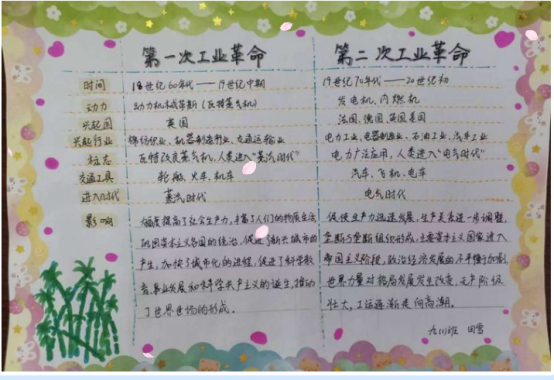 第一次工业革命 第二次工业革命
时间 18世纪60年代——19世纪中期 19世纪70年代——20世纪初
动力 动力机械革新(瓦特蒸气机) 发电机、内燃机
兴起国 英国 法国、德国、英国美国
兴起行业 棉纺织业、机器制造行业、交通运输业 电力工业、电器制造业、石油工业、汽车工业
标志 瓦特改良蒸气机,人类进入"蒸汽时代" 电力广泛应用,人类进入"电气时代"
交通工具 轮船、火车、机车 汽车、飞机、电车
进入时代 蒸汽时代 电气时代
影响
幅度提高了社会生产力,丰富了人们的物质生活
巩固资本主义各国的统治,促进了新兴城市的
产生,加快了城市化的进程,促进了科学教
育事业发展和科学共产主义的诞生,推动
了世界市场的形成。
促使生产力迅速发展,生产关系进一步调整,
垄断组织形成,主要资本主义国家进入
帝国主义阶段,政治经济发展的不平衡加剧
世界力量对格局发展发生改变,无产阶级
壮大,工运逐渐走向高潮。
九(1)班 田雪